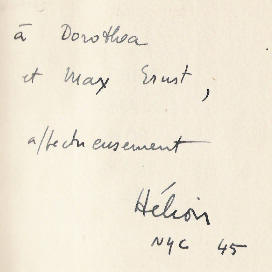 à Dorothea
et Max Ernst,
affectueusement
Hélion
NYC 45